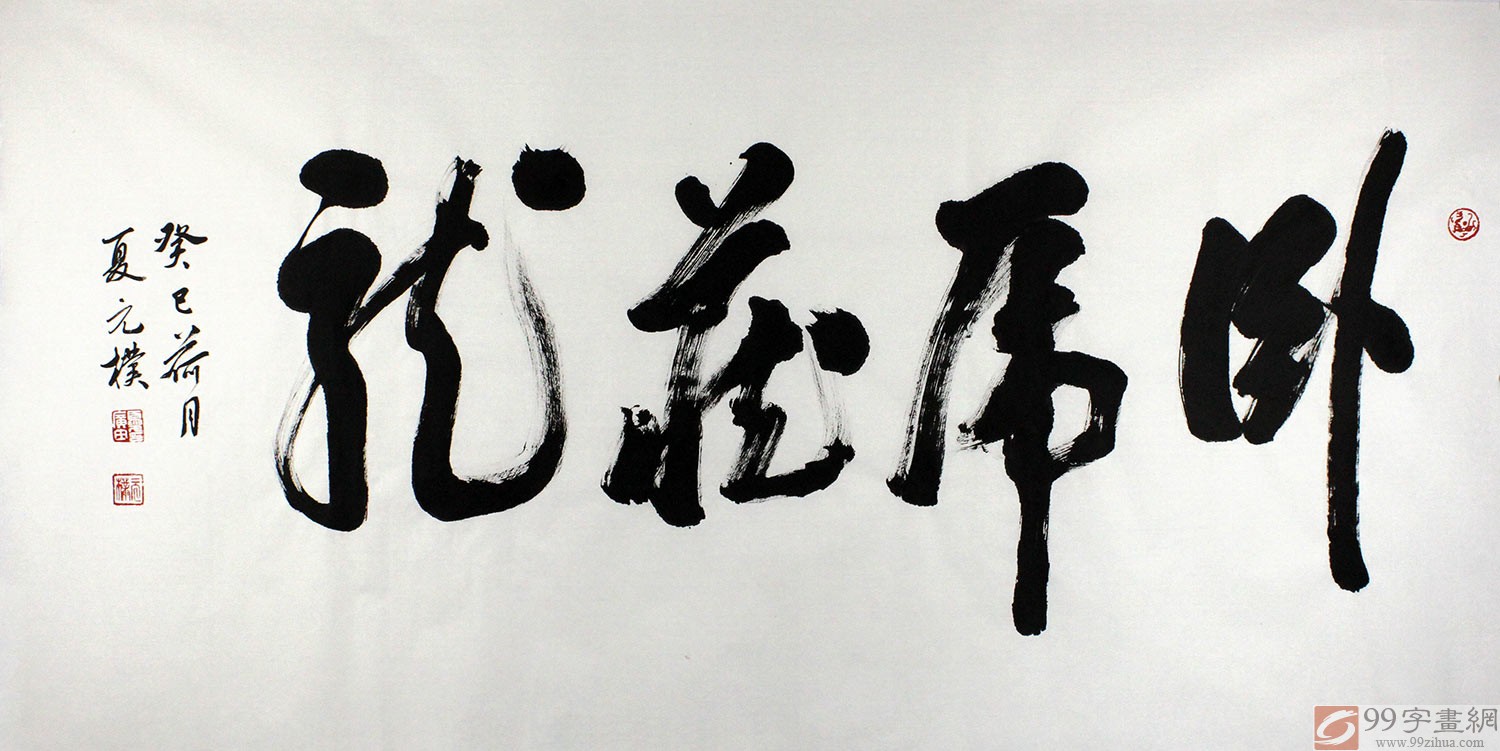 卧虎藏龍
癸巳荷月
夏元樸
99字畫網
www.99zihua.com